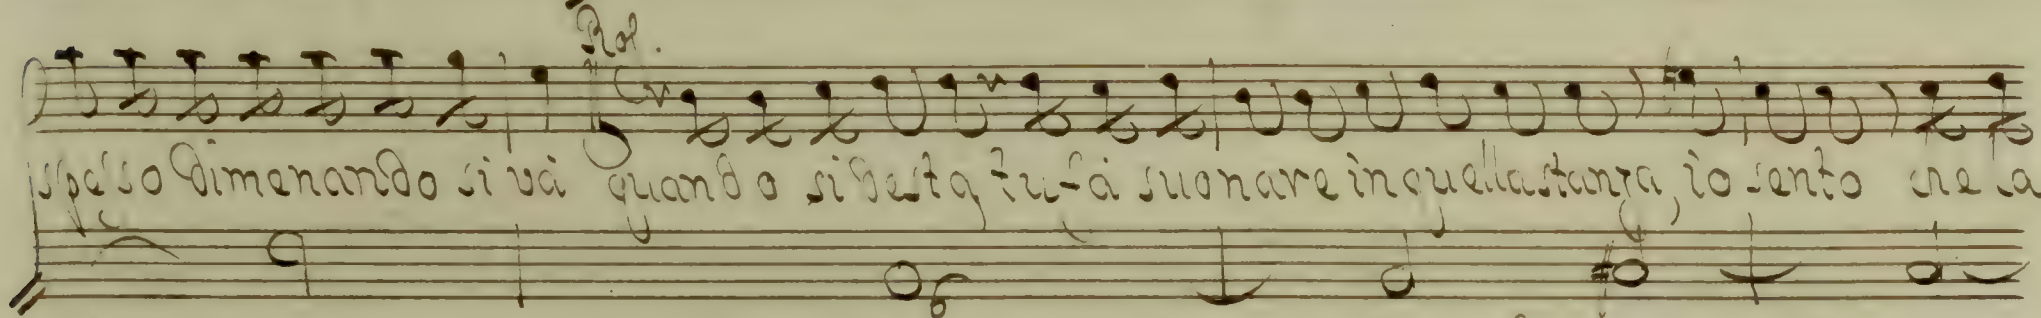 Rol.
spesso dimenando si và quando si desta tu fà suonare in quella stanza, io sento che la
6